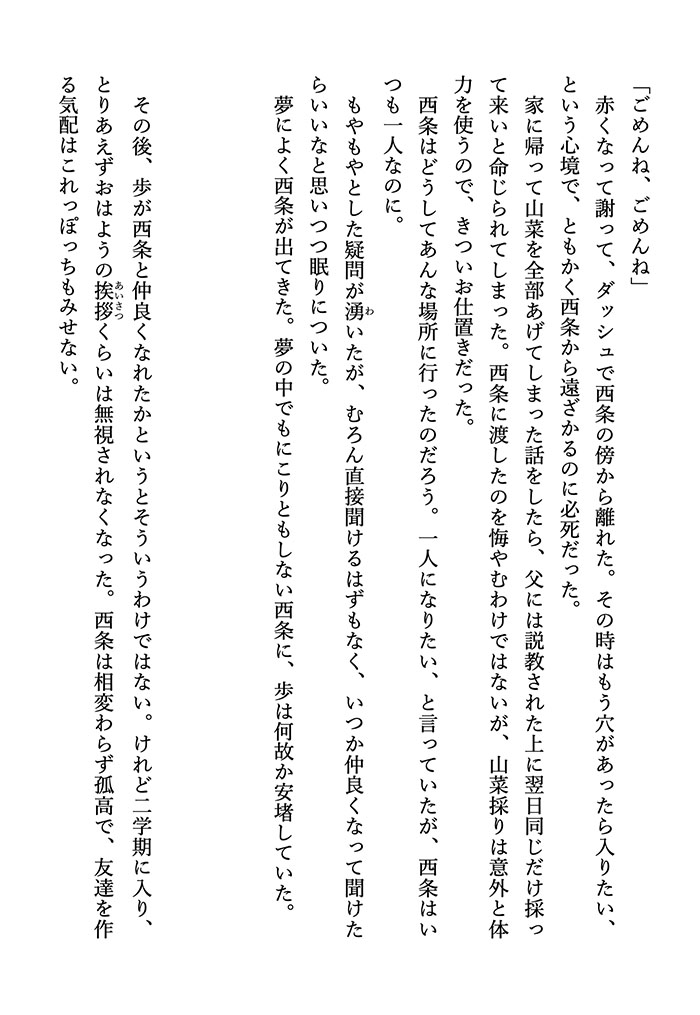 「ごめんね、ごめんね」
　赤くなって謝って、ダッシュで西条の傍から離れた。その時はもう穴があったら入りたい、
という心境で、ともかく西条から遠ざかるのに必死だった。
　家に帰って山菜を全部あげてしまった話をしたら、父には説教された上に翌日同じだけ採っ
て来いと命じられてしまった。西条に渡したのを悔やむわけではないが、山菜採りは意外と体
力を使うので、きついお仕置きだった。
　西条はどうしてあんな場所に行ったのだろう。一人になりたい、と言っていたが、西条はい
つも一人なのに。
　もやもやとした疑問が湧わいたが、むろん直接聞けるはずもなく、いつか仲良くなって聞けた
らいいなと思いつつ眠りについた。
　夢によく西条が出てきた。夢の中でもにこりともしない西条に、歩は何故か安堵していた。
　その後、歩が西条と仲良くなれたかというとそういうわけではない。けれど二学期に入り、
とりあえずおはようの挨拶あいさつくらいは無視されなくなった。西条は相変わらず孤高で、友達を作
る気配はこれっぽっちもみせない。